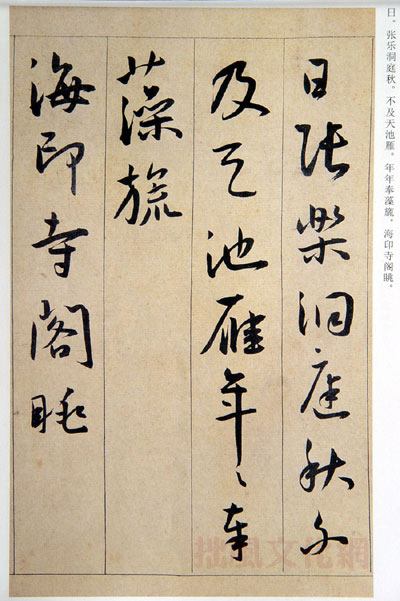 日张乐洞庭秋不
及天池雁年〻奉
藻旒
海印寺阁眺
日。张乐洞庭秋。不及天池雁。年年奉藻旒。海印寺阁眺。
拙風文化網